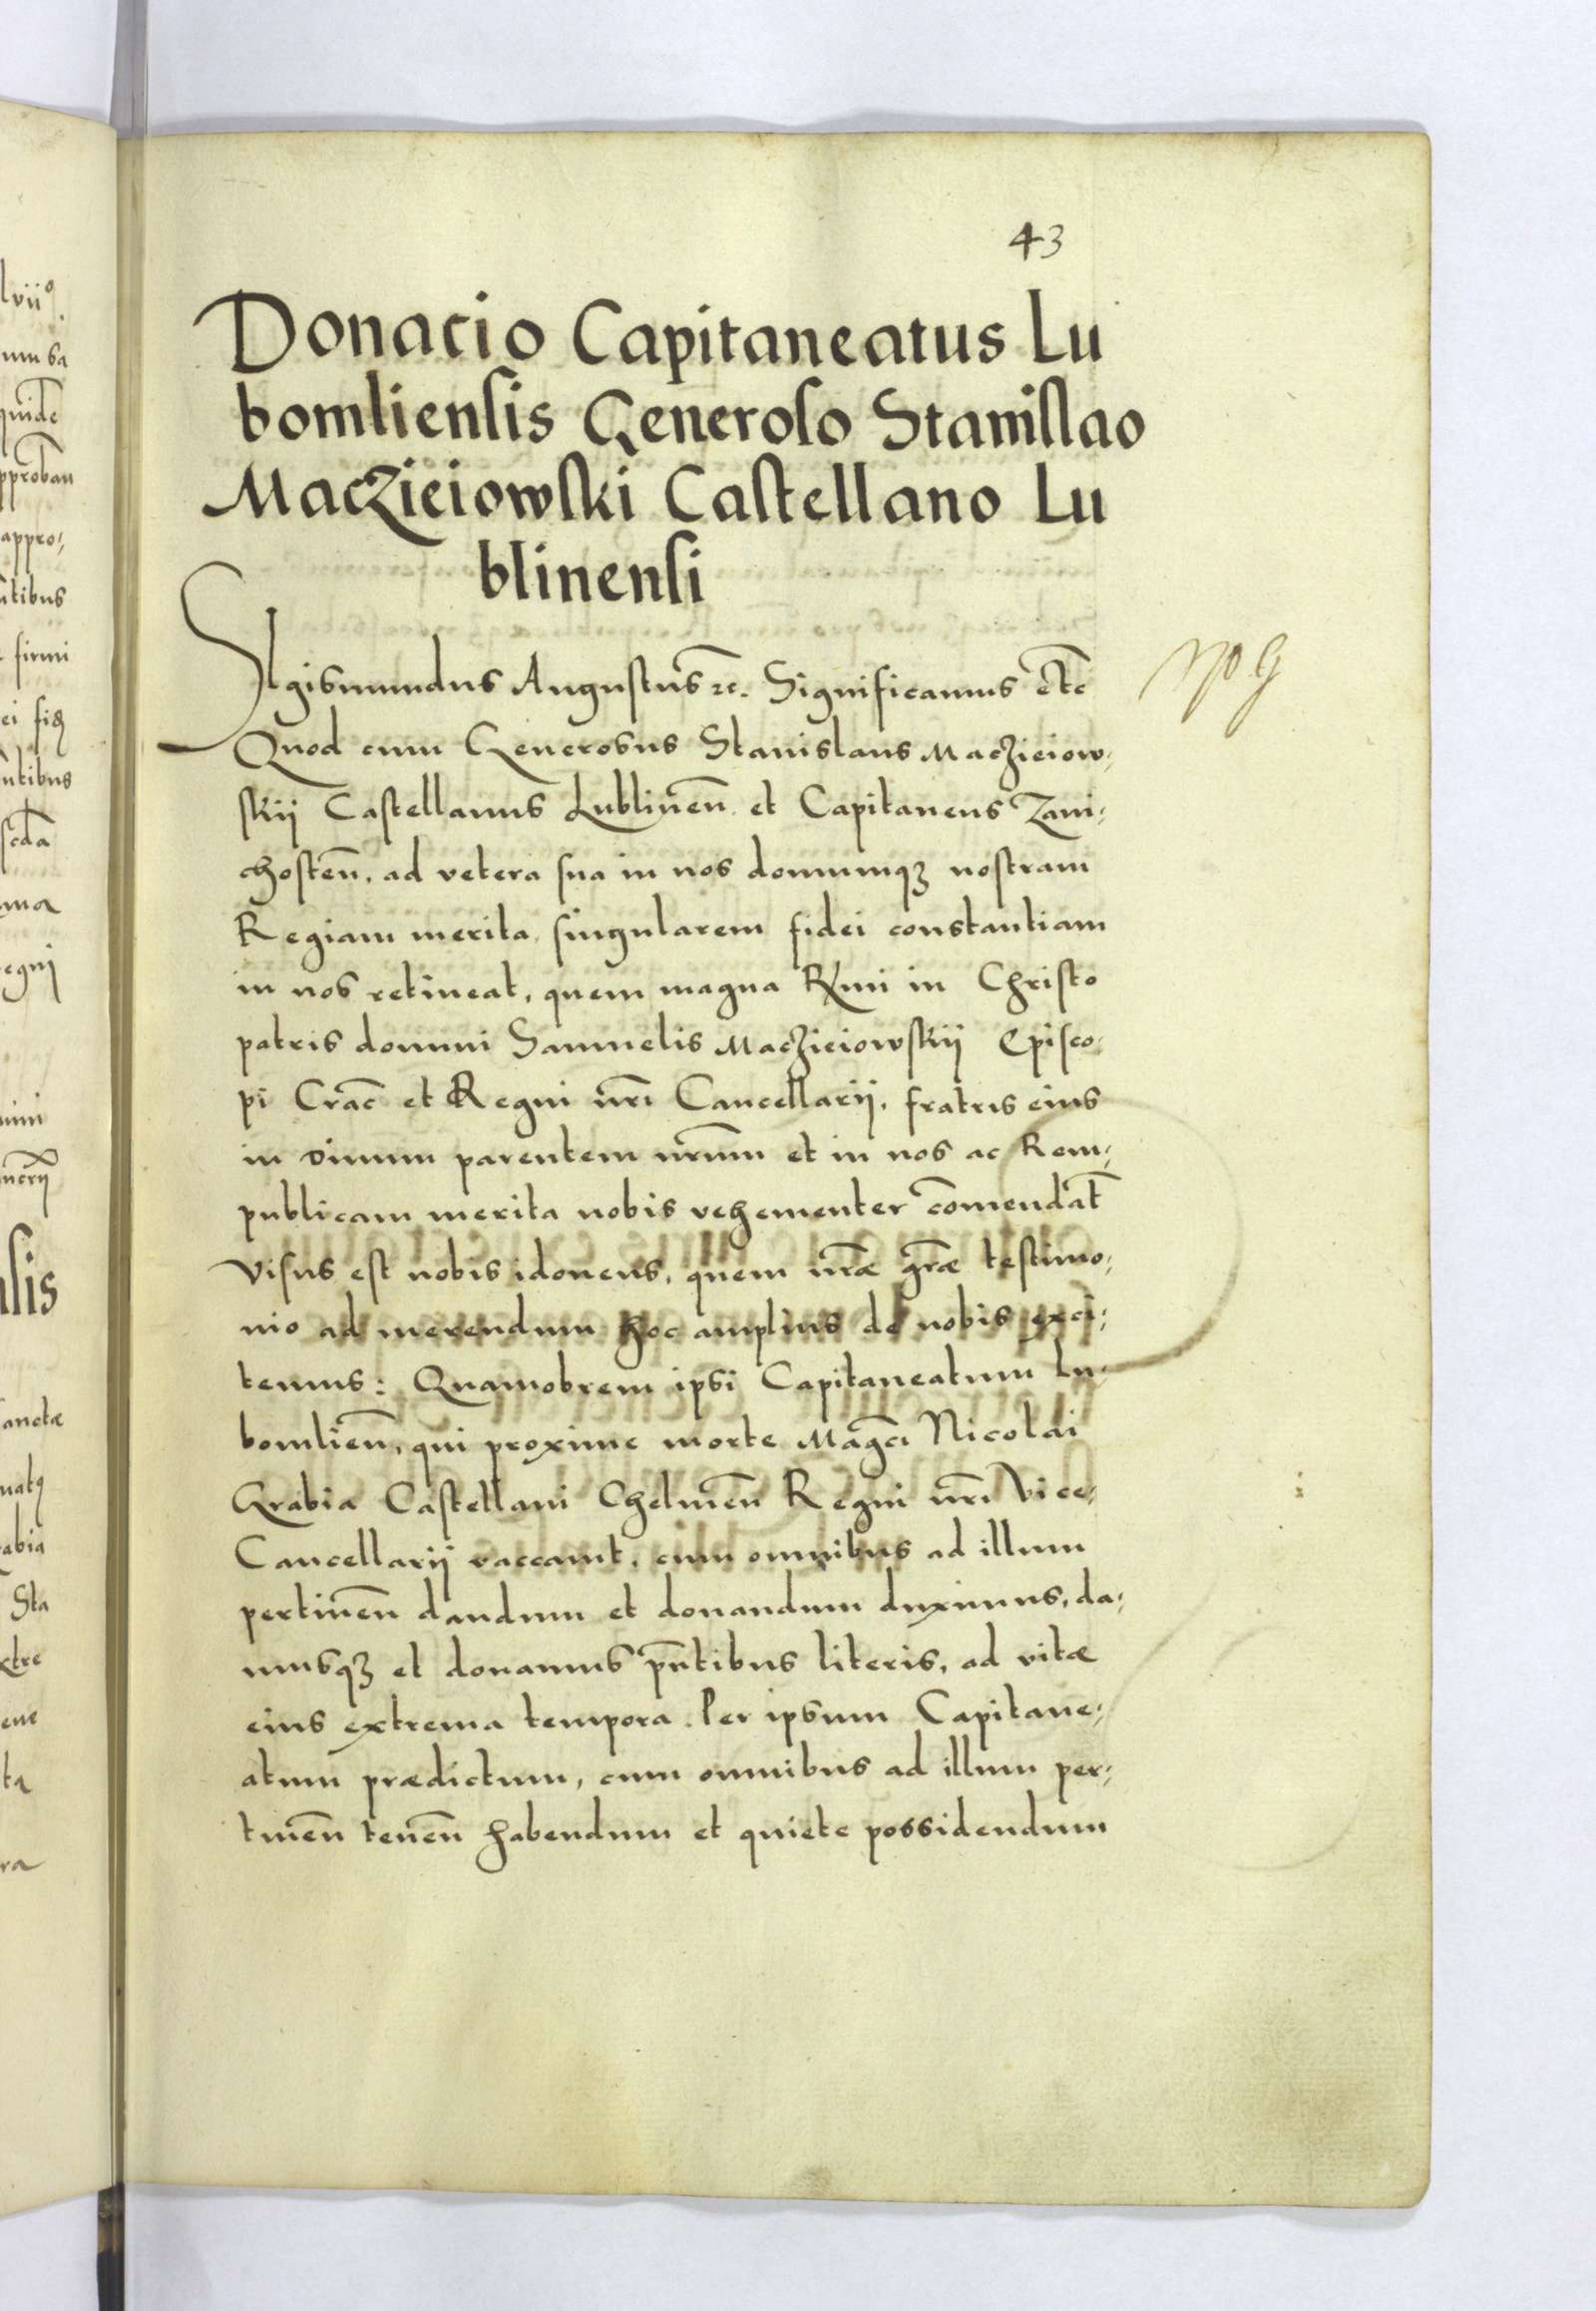 43
Donacio Capitaneatus Lu
bomliensis Generoso Stanislao
Maczieiowski Castellano Lu
blinensi
Sigismundus Augustus ꝛc. Significamus etc̃
Quod cum Generosus Stanislaus Maczieiow-
skij Castellanus Lublineñ. et Capitaneus Zaui-
chosteñ. ad vetera sua in nos domumqꝫ nostram
Regiam merita, singularem fidei constantiam
in nos retineat, quem magna Rm̃i in Christo
patris domini Samuelis Maczieiowskij Episco-
pi Crac̃ et Regni nr̃i Cancellarij, fratris eius
in Diuum parentem nr̃um et in nos ac Rem-
publicam merita nobis vehementer com̃endant
Visus est nobis idoneus, quem nr̃æ gr̃æ testimo-
nio ad merendum hoc amplius de nobis exci-
temus: Quamobrem ipsi Capitaneatum Lu-
bomlieñ, qui proxime morte Magc̃i Nicolai
Grabia Castellani Chelmeñ Regni nr̃i Vice-
Cancellarij vaccauit, cum omnibus ad illum
pertineñ dandum et donandum duximus, da-
musqꝫ et donamus pñtibus literis, ad vitæ
eius extrema tempora. Per ipsum Capitane-
atum prædictum, cum omnibus ad illum per-
tineñ teneñ habendum et quiete possidendum
lvii°
appro-
ntibus
firmi
ntibus
egnj
lis
anctæ
abia
Sta
xtre
ene
ta
ra